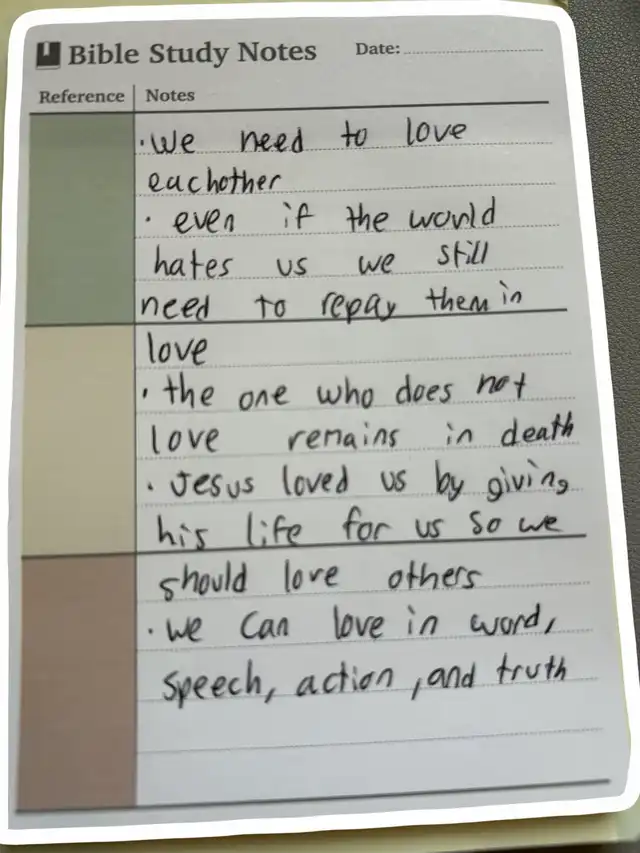 Bible Study Notes Date:
Reference Notes
·we need to love
eachother
· even if the world
hates us we still
need to repay them in
love
· the one who does not
love remains in death
· Jesus loved us by giving
his life for us so we
should love others
· we can love in word,
speech, action, and truth